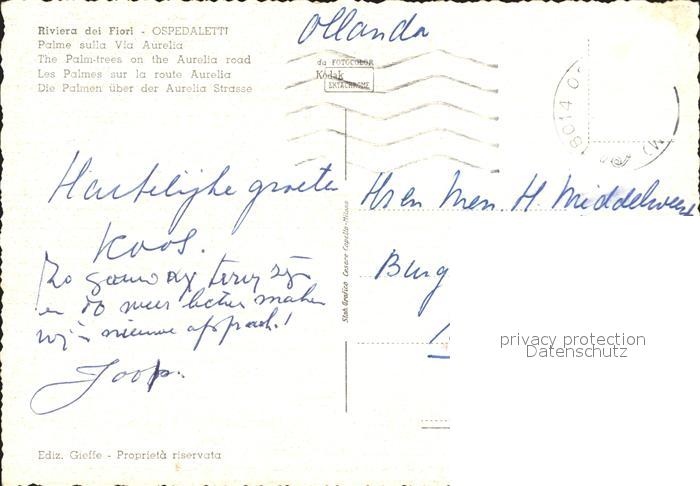 Riviera dei Fiori - OSPEDALETTI
Palme sulla Via Aurelia
The Palm-trees on the Aurelia road
Les Palmes sur la route Aurelia
Die Palmen über der Aurelia Strasse
Ollanda
da FOTOCOLOR
Kodak
EKTACHROME
18014
Hartelijke groeten
Koos.
Zo gauw wij terug zijn
en to weer beter maken
wij 'n nieuwe afspraak!
Joop.
Hr en Mevr. H. Middelweerd
Burg
Stab. Grafico Cesare Capello - Milano
privacy protection
Datenschutz
Ediz. Gieffe - Proprietà riservata